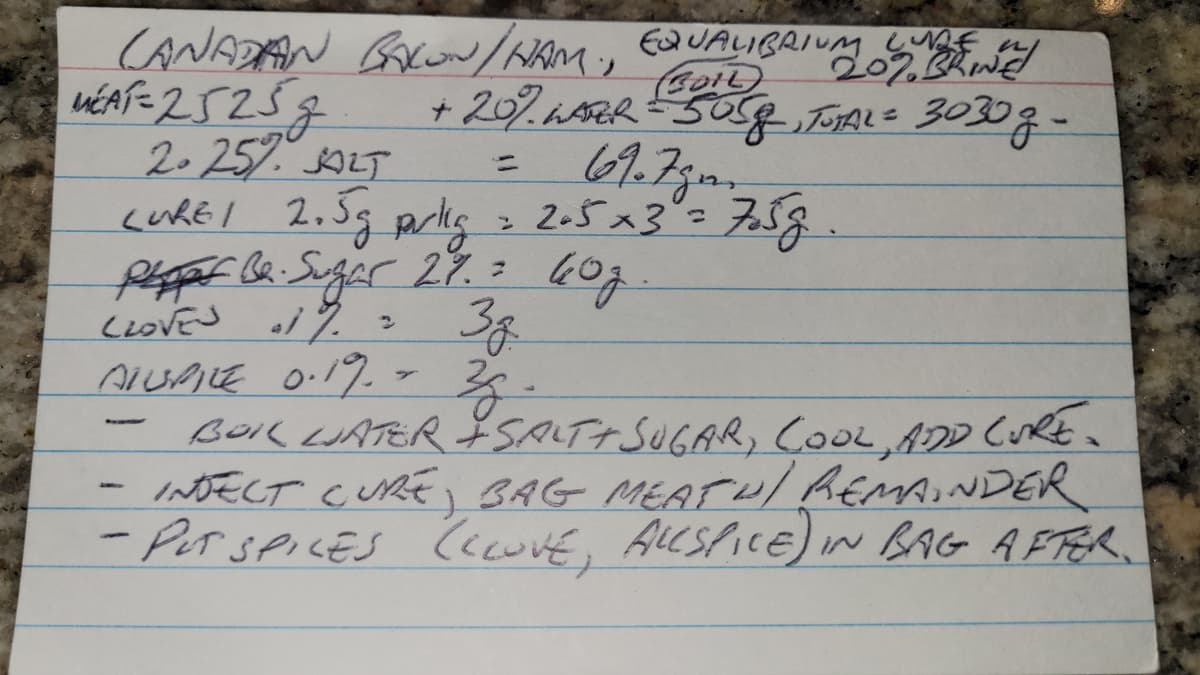 CANADIAN BACON/HAM, EQUALIBRIUM CURE W/ 20% BRINE
(BOIL)
MEAT = 2525g + 20% WATER = 505g, TOTAL = 3030g -
2.25% SALT = 69.7gm.
CURE 1 2.5g per kg = 2.5 x 3 = 7.5g.
Br. Sugar 2% = 60g.
CLOVES .1% = 3g
ALLSPICE 0.1% - 3g -
- BOIL WATER + SALT + SUGAR, COOL, ADD CURE.
- INJECT CURE, BAG MEAT W/ REMAINDER
- PUT SPICES (CLOVE, ALLSPICE) IN BAG AFTER.